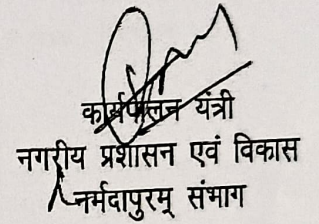 कार्यपालन यंत्री
नगरीय प्रशासन एवं विकास
नर्मदापुरम् संभाग